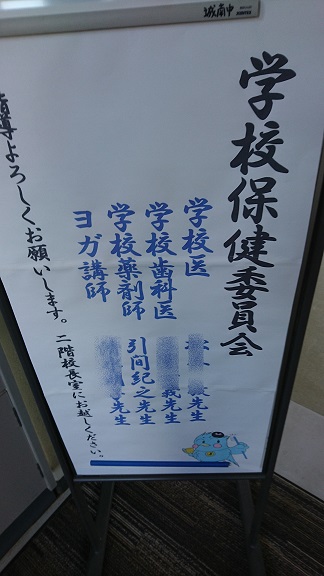 城南中
学校保健委員会
学校医 先生
学校歯科医 我先生
学校薬剤師 引間紀之先生
ヨガ講師 先生
指導よろしくお願いします。二階校長室にお越しください。